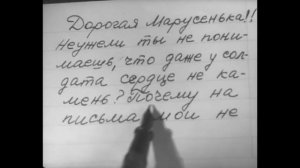 Дорогая Марусенька!!
Неужели ты не пони-
маешь, что даже у сол-
дата сердце не ка-
мень? Почему на
письма мои не